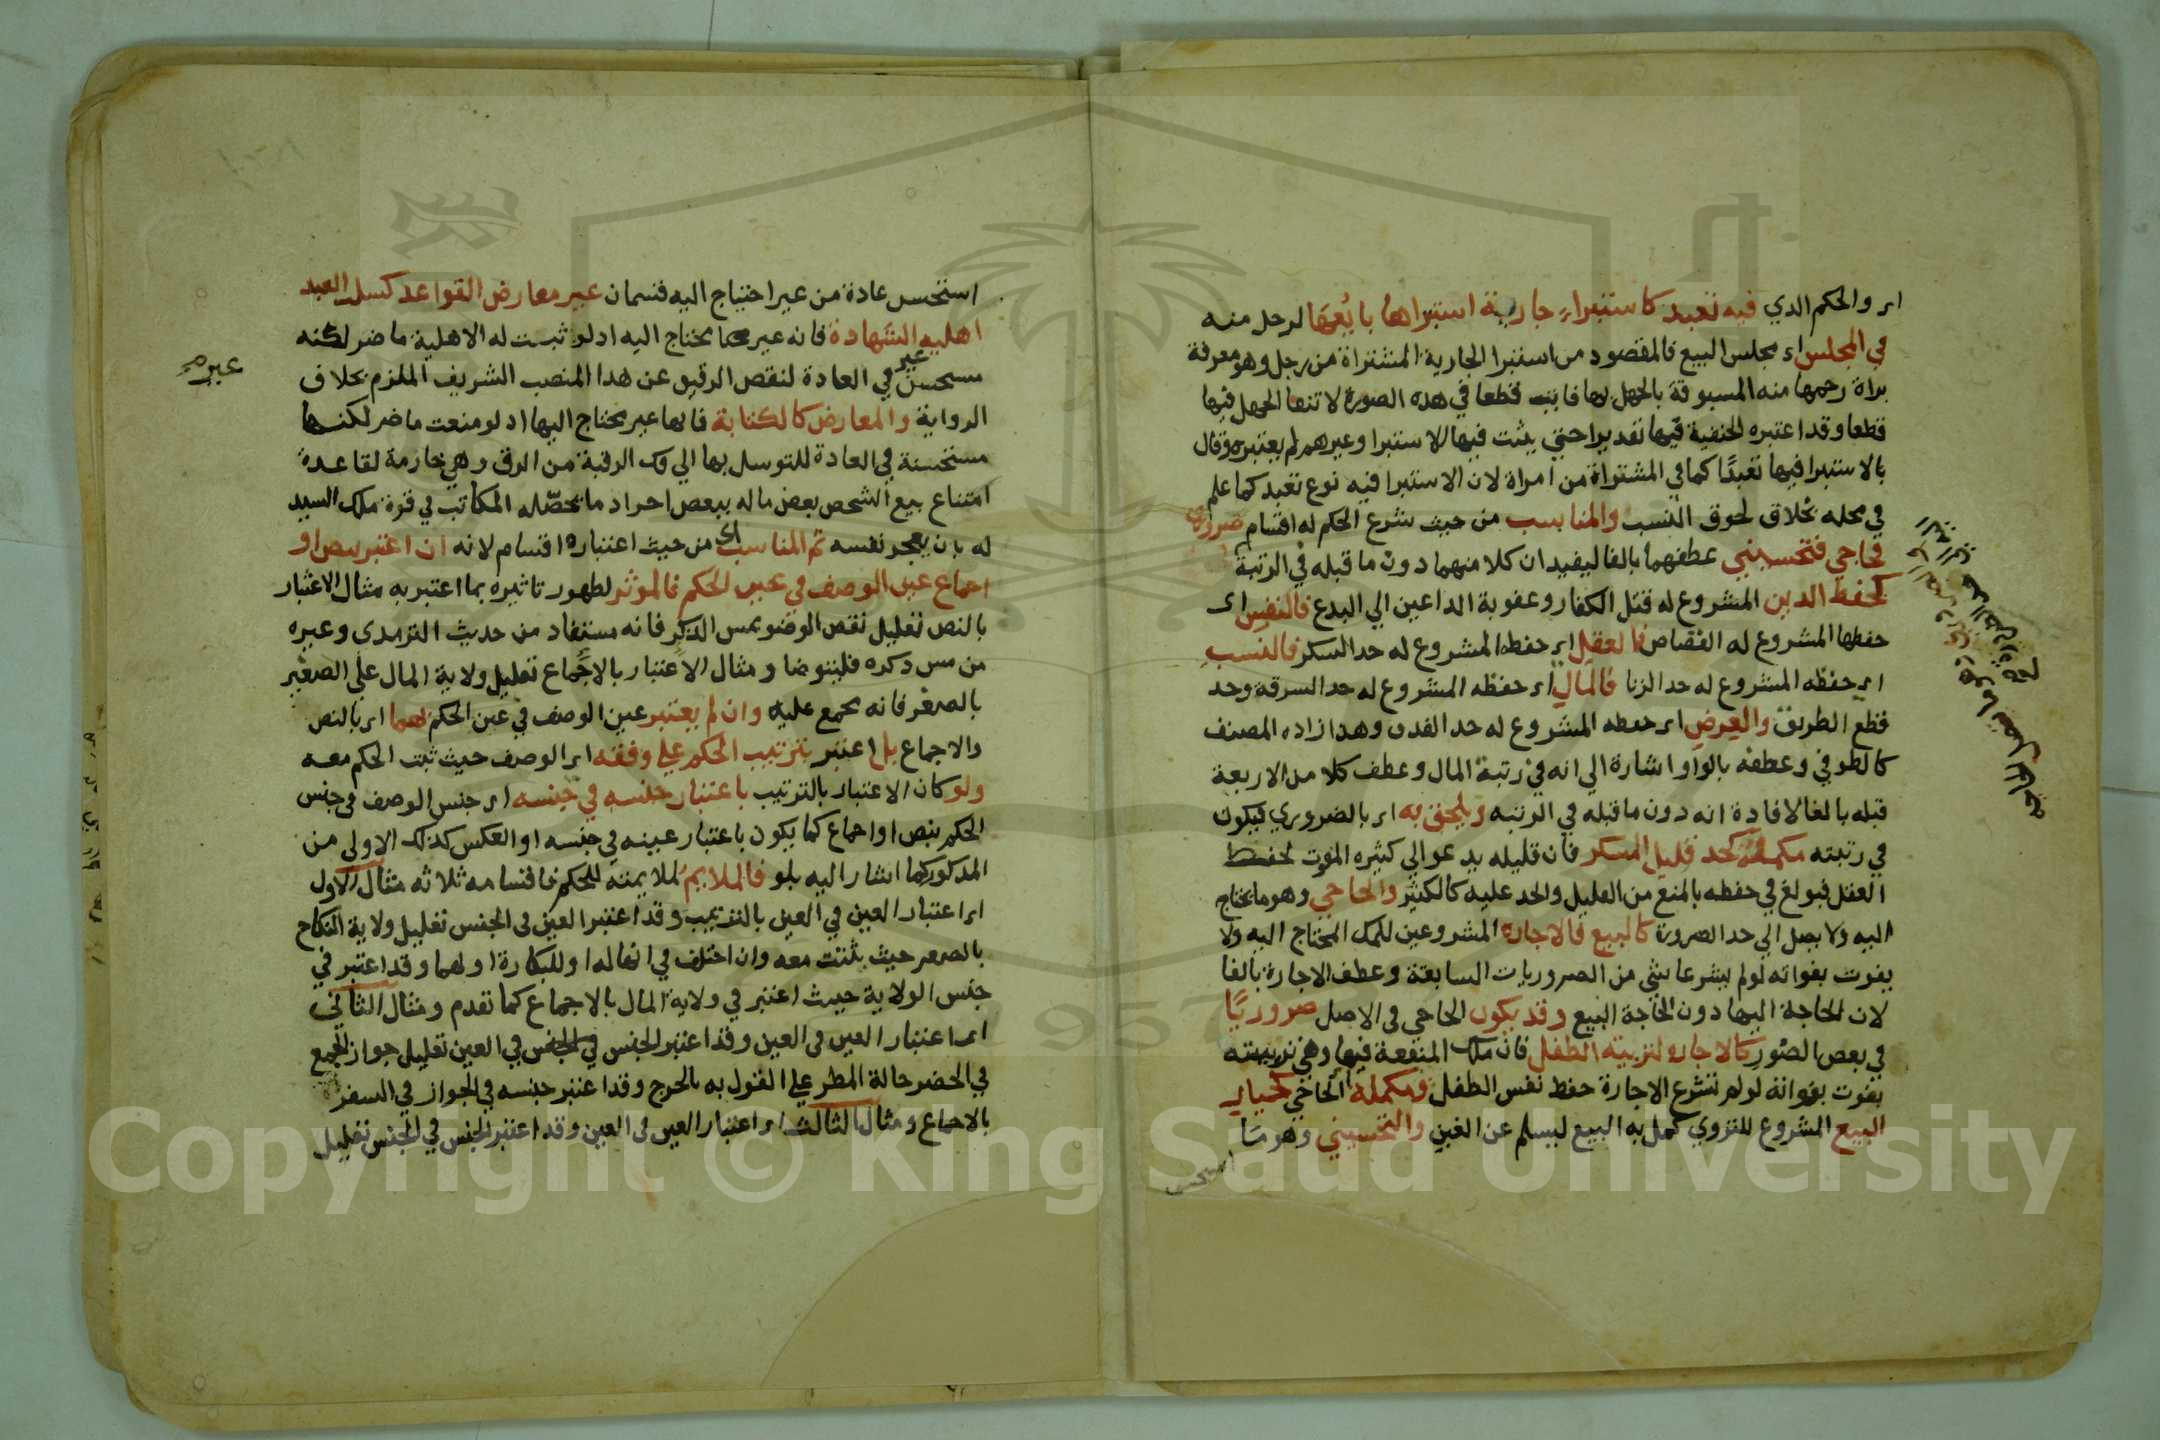 اى والحكم الذي فيه تعبد كاستبراء جارية استبراها بايعها لرجل منه
في المجلس اى مجلس البيع فالمقصود من استبرا الجارية المشتراة من رجل وهو معرفة
براة رحمها منه المسبوقة بالجهل بها فايت قطعا في هذه الصورة لانتفا الجهل فيها
قطعا وقد اعتبره الحنفية فيها تقديرا حتى يثبت فيها الاستبرا وغيرهم لم يعتبره وقال
بالاستبرا فيها تعبدًا كما في المشتراة من امراة لان الاستبرا فيه نوع تعبد كما علم
في محله بخلاف لحوق النسب والمناسب من حيث شرع الحكم له اقسام ضروري
فحاجي فتحسيني عطفهما بالفا ليفيد ان كلا منهما دون ما قبله في الرتبة
كحفظ الدين المشروع له قتل الكفار وعقوبة الداعين الي البدع فالنفس اى
حفظها المشروع له القصاص فالعقل اى حفظه المشروع له حد السكر فالنسب
اى حفظه المشروع له حد الزنا فالمال اى حفظه المشروع له حد السرقة وحد
قطع الطريق والعرض اى حفظه المشروع له حد القذف وهذا زاده المصنف
كالطوفي وعطفه بالواو اشارة الي انه في رتبة المال وعطف كلا من الاربعة
قبله بالفا لافادة انه دون ما قبله في الرتبه ويلحق به اى بالضروري فيكون
في رتبته مكمله كحد قليل المسكر فان قليله يدعو الي كثيره المفوت لحفظ
العقل فبولغ في حفظه بالمنع من القليل والحد عليه كالكثير والحاجي وهو ما يحتاج
اليه ولا يصل الي حد الضرورة كالبيع فالاجارة المشروعين للملك المحتاج اليه ولا
يفوت بفواته لو لم يشرعا شي من الضروريات السابقة وعطف الاجارة بالفا
لان الحاجة اليها دون الحاجة البيع وقد يكون الحاجي في الاصل ضروريًا
في بعض الصور كالاجارة لتربية الطفل فان ملك المنفعة فيها وهي تربيته
يفوت بفواته لو لم تشرع الاجارة حفظ نفس الطفل ومكمله الحاجي كخيار
البيع المشروع للتروي كمل به البيع ليسلم عن الغبن والتحسيني وهو ما
استحسن عادة من غير احتياج اليه قسمان غير معارض القواعد كسلب العبد
اهليه الشهادة فانه غير محتاج اليه اذ لو ثبتت له الاهلية ما ضر لكنه
غير
مستحسن في العادة لنقص الرقيق عن هذا المنصب الشريف الملزم بخلاف
الرواية والمعارض كالكتابة فانها غير محتاج اليها اذ لو منعت ما ضر لكنها
مستحسنة في العادة للتوسل بها الي فك الرقبة من الرق وهي خارمة لقاعدة
امتناع بيع الشخص بعض ماله ببعض اخر اذ ما يحصّله المكاتب في قوة ملك السيد
له بان يعجز نفسه ثم المناسب اى من حيث اعتباره اقسام لانه ان اعتبر بنص او
اجماع عين الوصف في عين الحكم فالموثر لظهور تاثيره بما اعتبر به مثال الاعتبار
بالنص تعليل نقض الوضو بمس الذكر فانه مستفاد من حديث الترمذي وغيره
من مس ذكره فليتوضا ومثال الاعتبار بالاجماع تعليل ولاية المال على الصغير
بالصغر فانه مجمع عليه وان لم يعتبر عين الوصف في عين الحكم بهما اى بالنص
والاجماع بل اعتبر بترتيب الحكم على وفقه اى الوصف حيث ثبت الحكم معه
ولو كان الاعتبار بالترتيب باعتبار جنسه في جنسه اى جنس الوصف في جنس
الحكم بنص او اجماع كما يكون باعتبار عينه في جنسه او العكس كذلك الاولي من
المذكور كما اشار اليه بلو فالملايم لملايمته للحكم فاقسامه ثلاثه مثال الاول
اى اعتبار العين في العين بالترتيب وقد اعتبر العين في الجنس تعليل ولاية النكاح
بالصغر حيث يثبت معه وان اختلف في انها له او للبكارة او لهما وقد اعتبر في
جنس الولاية حيث اعتبر في ولاية المال بالاجماع كما تقدم ومثال الثاني
اى اعتبار العين في العين وقد اعتبر الجنس في الجنس في العين تعليل جواز الجمع
في الحضر حالة المطر على القول به بالحرج وقد اعتبر جنسه في الجواز في السفر
بالاجماع ومثال الثالث اى اعتبار العين في العين وقد اعتبر الجنس في الجنس تعليل
Copyright © King Saud University
1957